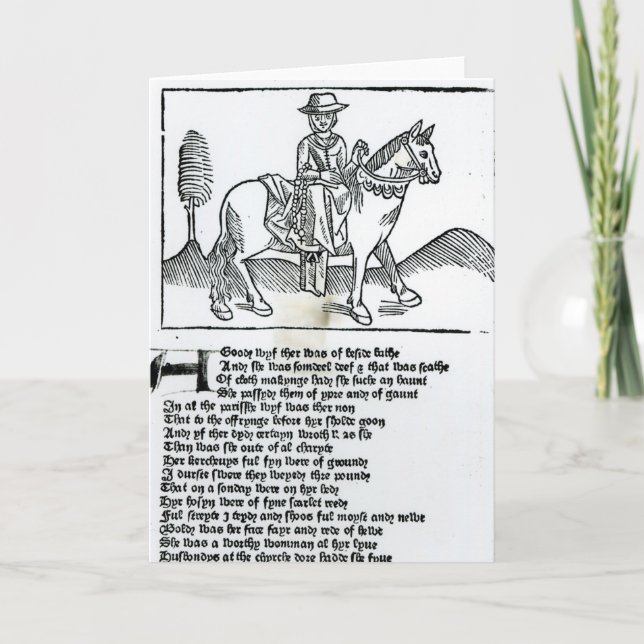 A Goody wyf ther was of beside bathe
Andy she was somdeel deef & that was scathe
Of cloth makynge hady she suche an haunt
She passydy them of ypre andy of gaunt
In al the parisshe wyf was ther non
That to the offrynge before hyr sholde goon
Andy yf ther dydy certayn wroth was she
Than was she oute of al charyte
Her kerchauys ful fyn were of groundy
I durste swere they weyedy thre poundy
That on a sonday were on hyr hedy
Hyr hosyn were of fyne scarlet redy
Ful streyte I teydy andy shoos ful moyst andy newe
Boldy was her face fayr andy rede of hewe
She was a worthy womman al hyr lyue
Husbondys at the chyrche dore hadde she fyue